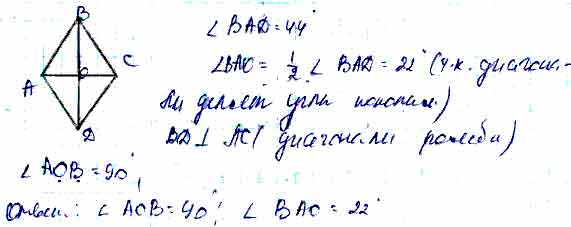 B
A
O
C
D
∠BAD=44°
∠BAO= 1/2 ∠ BAD=22° (т.к. диагона-
ли делят углы пополам)
BD⊥ AC( диагонали ромба)
∠ AOB =90°;
Ответ: ∠ AOB=90°; ∠ BAO =22°